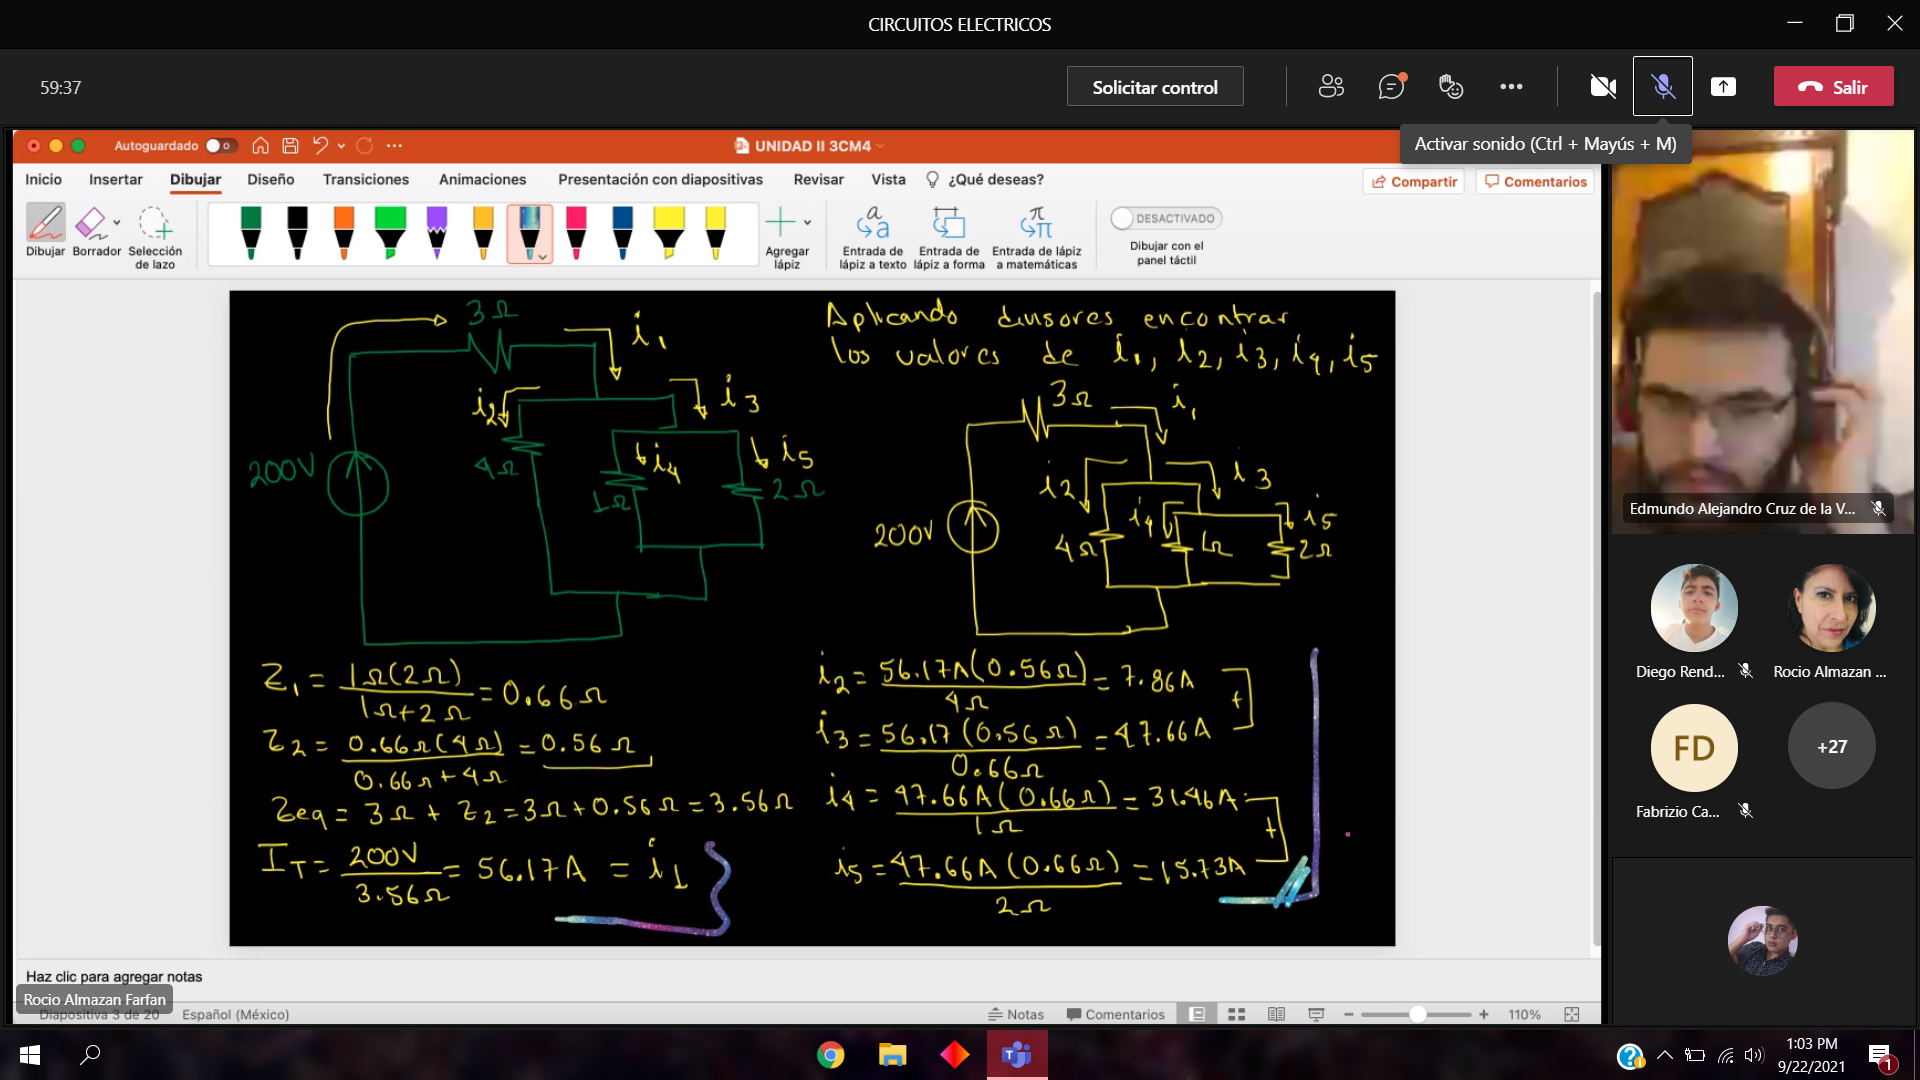 CIRCUITOS ELECTRICOS
59:37
Solicitar control
Salir
Activar sonido (Ctrl + Mayús + M)
Autoguardado
UNIDAD II 3CM4
Inicio Insertar Dibujar Diseño Transiciones Animaciones Presentación con diapositivas Revisar Vista ¿Qué deseas?
Compartir Comentarios
Dibujar Borrador Selección de lazo
Agregar lápiz
Entrada de lápiz a texto
Entrada de lápiz a forma
Entrada de lápiz a matemáticas
DESACTIVADO
Dibujar con el panel táctil
3Ω
i1
i2
i3
200V
4Ω
i4
1Ω
i5
2Ω
Aplicando divisores encontrar
los valores de i1, i2, i3, i4, i5
3Ω
i1
i2
i3
200V
4Ω
i4
1Ω
i5
2Ω
Z1 = 1Ω(2Ω) / 1Ω+2Ω = 0.66Ω
Z2 = 0.66Ω(4Ω) / 0.66Ω+4Ω = 0.56Ω
Zeq = 3Ω + Z2 = 3Ω + 0.56Ω = 3.56Ω
IT = 200V / 3.56Ω = 56.17A = i1
i2 = 56.17A(0.56Ω) / 4Ω = 7.86A
+
i3 = 56.17(0.56Ω) / 0.66Ω = 47.66A
i4 = 47.66A(0.66Ω) / 1Ω = 31.46A
+
i5 = 47.66A(0.66Ω) / 2Ω = 15.73A
Edmundo Alejandro Cruz de la V...
Diego Rend...
Rocio Almazan ...
FD
+27
Fabrizio Ca...
Haz clic para agregar notas
Rocio Almazan Farfan
Diapositiva 3 de 20 Español (México)
Notas Comentarios 110%
1:03 PM
9/22/2021
1